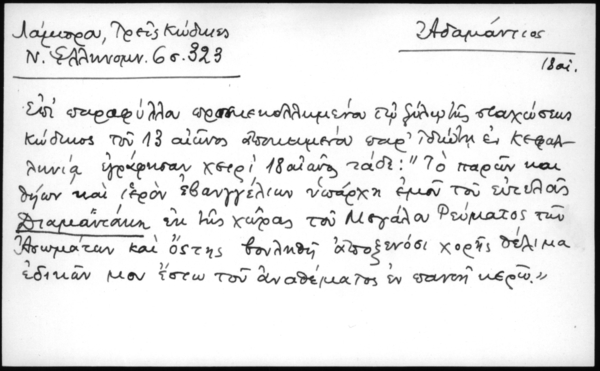 Λάμπρου, Τρεῖς κώδικες
Ν. Ἑλληνομν. 6 σ. 323
Ἀδαμάντιος
18 αἰ.
Ἐπὶ παραφύλλου προσκεκολλημένου τῷ ξύλῳ τῆς σταχώσεως
κώδικος τοῦ 13 αἰῶνος ἀποκειμένου παρ' ἰδιώτῃ ἐν Κεφαλ-
ληνίᾳ ἐγράφησαν χειρὶ 18 αἰῶνος τάδε: "Τὸ παρὼν και
θήων καὶ ἱερὸν ἐβανγγέλιων νὑπάρχη ἐμοῦ τοῦ εὐτελοῦς
Διαμαντάκη ἐκ τῆς χώρας τοῦ Μεγάλου Ρεύματος τῶν
Ἀσωμάτων καὶ ὅστης βουληθῆ ἀποξενόσι χορῆς θέλιμα
ἐδικῶν μου ἔστω τοῦ ἀναθέματος ἐν παντὴ κερῶ."